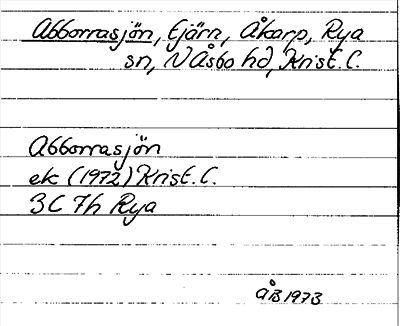 Abborrasjön, tjärn, Åkarp, Rya
sn, N Åsbo hd, Krist. C.
Abborrasjön
ek (1972) Krist. C.
3C 7h Rya
ÅB 1973